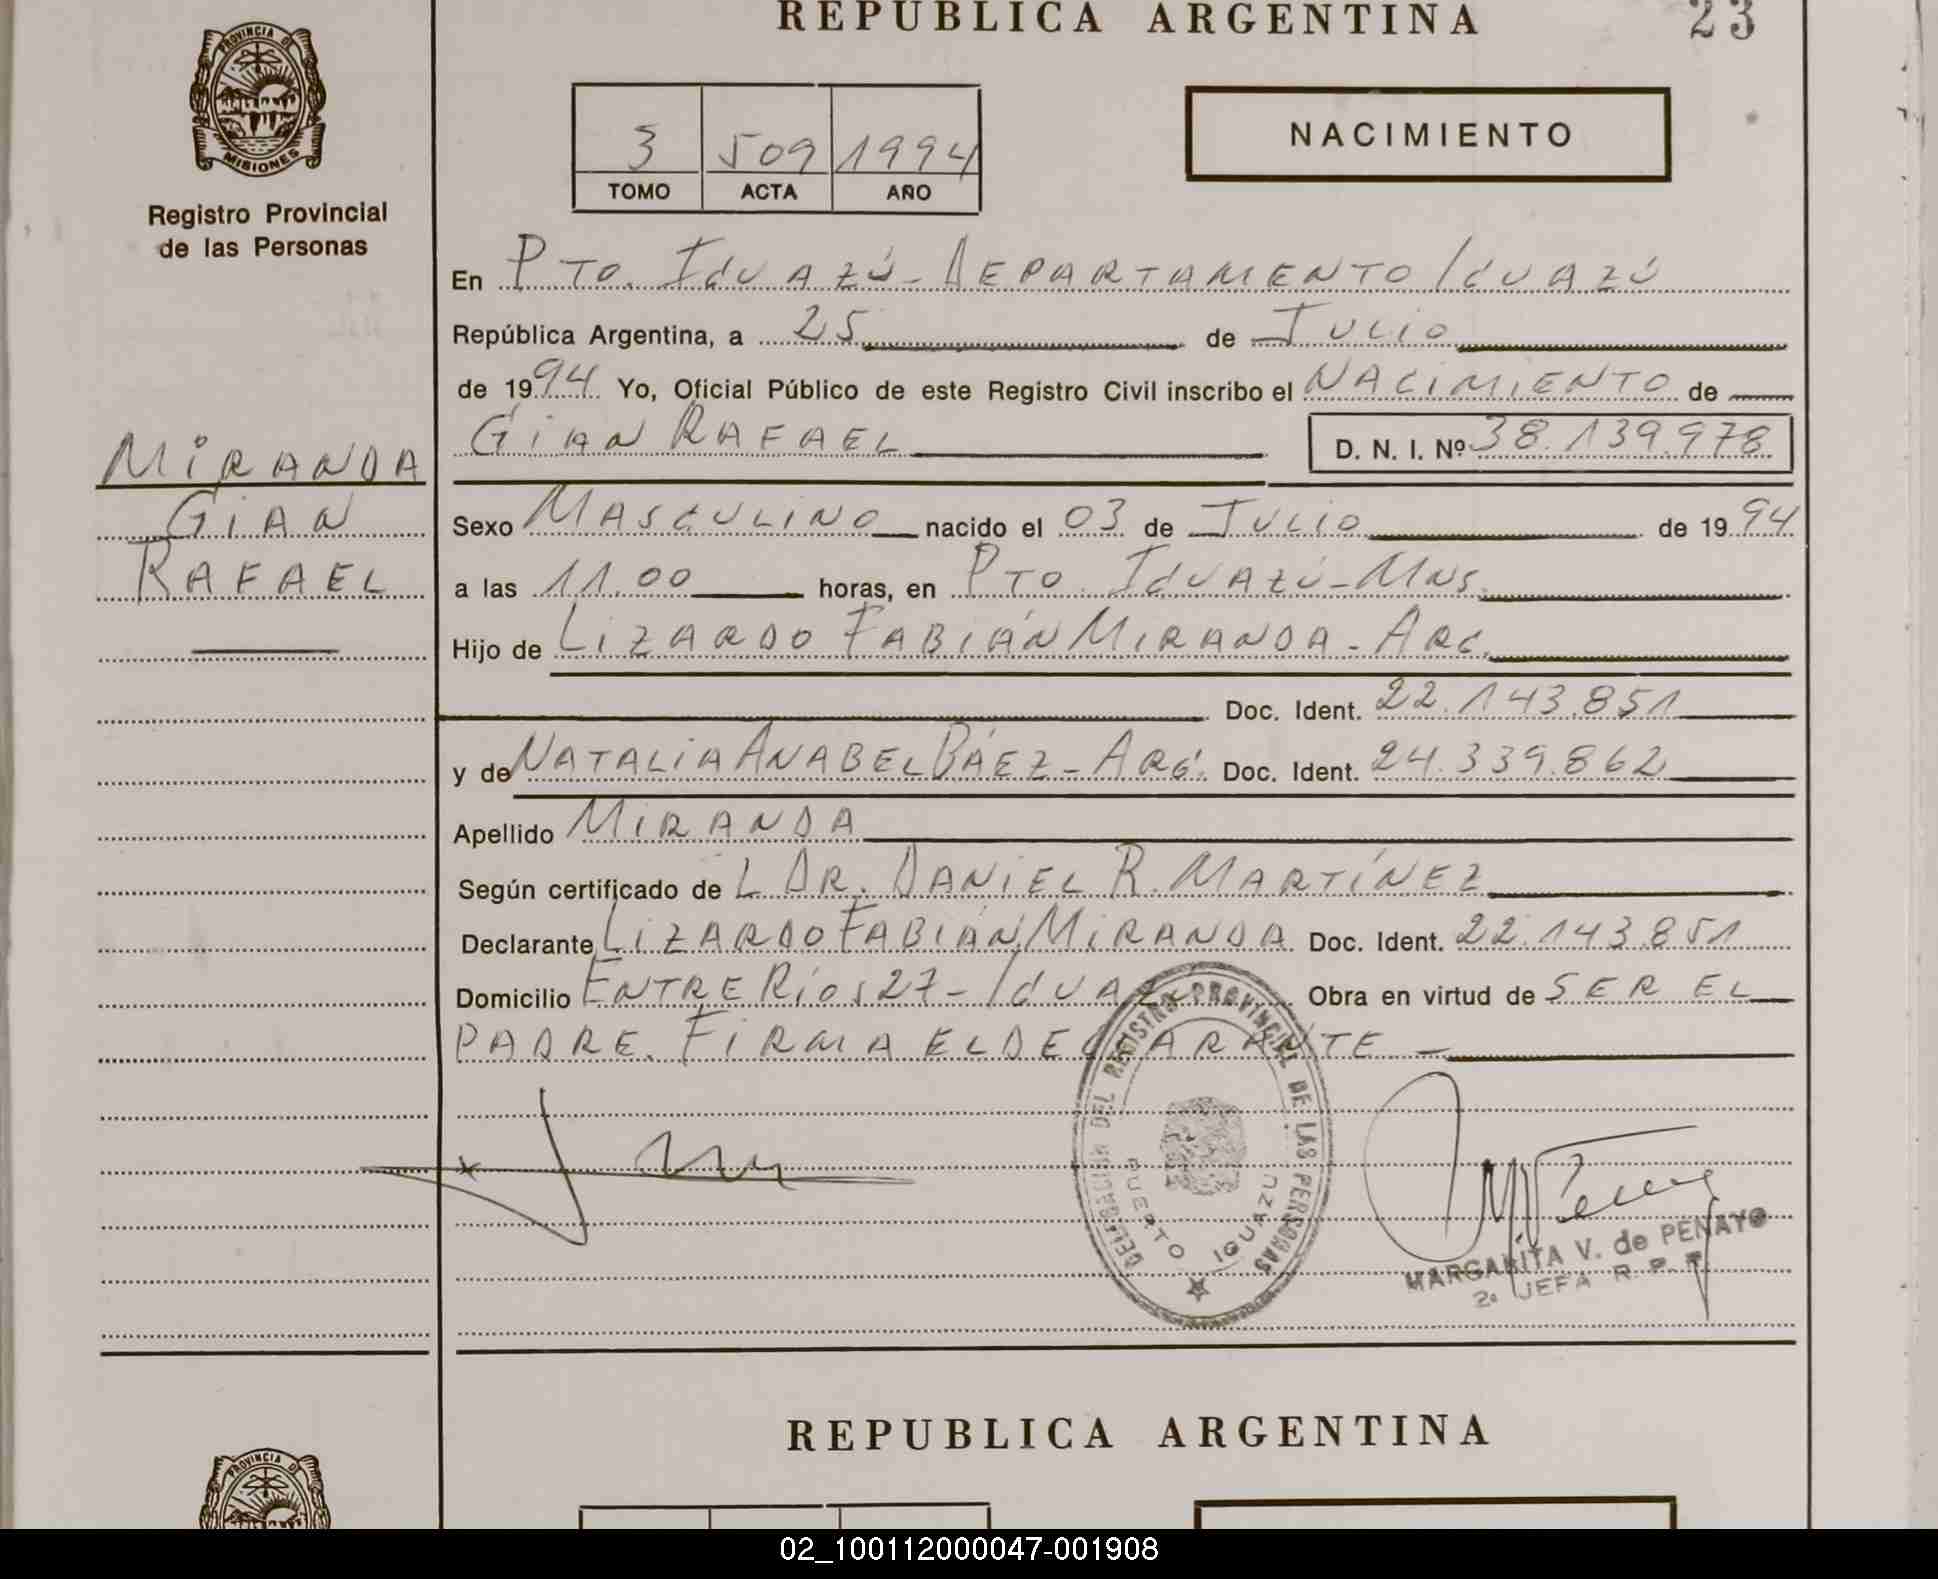 REPUBLICA ARGENTINA
23
PROVINCIA DE
MISIONES
Registro Provincial
de las Personas
3 509 1994
TOMO ACTA AÑO
NACIMIENTO
En Pto. Iguazú - Departamento Iguazú
República Argentina, a 25 de Julio
de 1994 Yo, Oficial Público de este Registro Civil inscribo el NACIMIENTO de
GIAN RAFAEL D. N. I. Nº 38.139.978
MIRANDA
GIAN
RAFAEL
Sexo MASCULINO nacido el 03 de Julio de 1994
a las 11.00 horas, en Pto. Iguazú - Mns.
Hijo de LIZARDO FABIÁN MIRANDA - ARG.
Doc. Ident. 22.143.851
y de NATALIA ANABEL BÁEZ - ARG. Doc. Ident. 24.339.862
Apellido MIRANDA
Según certificado de L DR. DANIEL R. MARTÍNEZ
Declarante LIZARDO FABIÁN MIRANDA Doc. Ident. 22.143.851
Domicilio ENTRE RÍOS 27 - IGUAZÚ Obra en virtud de SER EL
PADRE. FIRMA EL DECLARANTE -
DELEGACION DEL REGISTRO PROVINCIAL DE LAS PERSONAS
PUERTO IGUAZU
MARGARITA V. de PENAYO
2a JEFA R. P. P.
REPUBLICA ARGENTINA
PROVINCIA DE
02_100112000047-001908